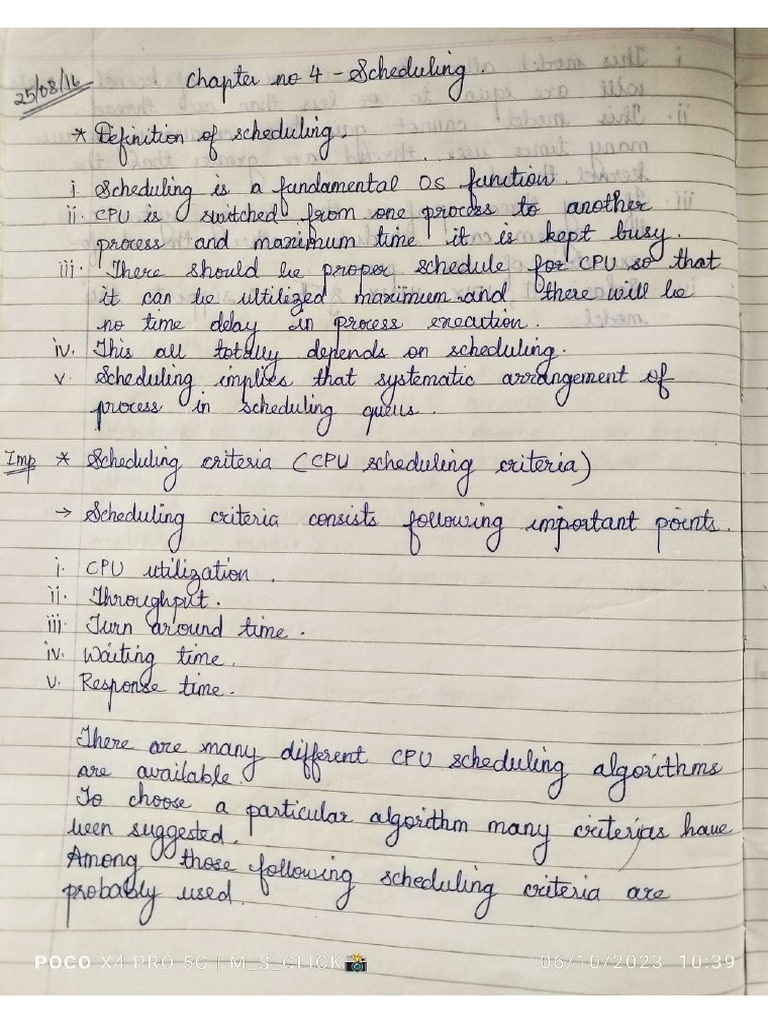 25/08/16
Chapter no 4 - Scheduling.
* Definition of scheduling.
i. Scheduling is a fundamental OS function.
ii. CPU is switched from one process to another
process and maximum time it is kept busy.
iii. There should be proper schedule for CPU so that
it can be ultilized maximum and there will be
no time delay in process execution.
iv. This all totally depends on scheduling.
v. Scheduling implies that systematic arrangement of
process in scheduling queus.
Imp * Scheduling criteria (CPU scheduling criteria)
→ Scheduling criteria consists following important points.
i. CPU utilization.
ii. Throughput.
iii. Turn around time.
iv. Waiting time.
v. Response time.
There are many different CPU scheduling algorithms
are available.
To choose a particular algorithm many criterias have
been suggested.
Among those following scheduling criteria are
probably used.
POCO X4 PRO 5G | M_S_CLICK📸
06/10/2023 10:39